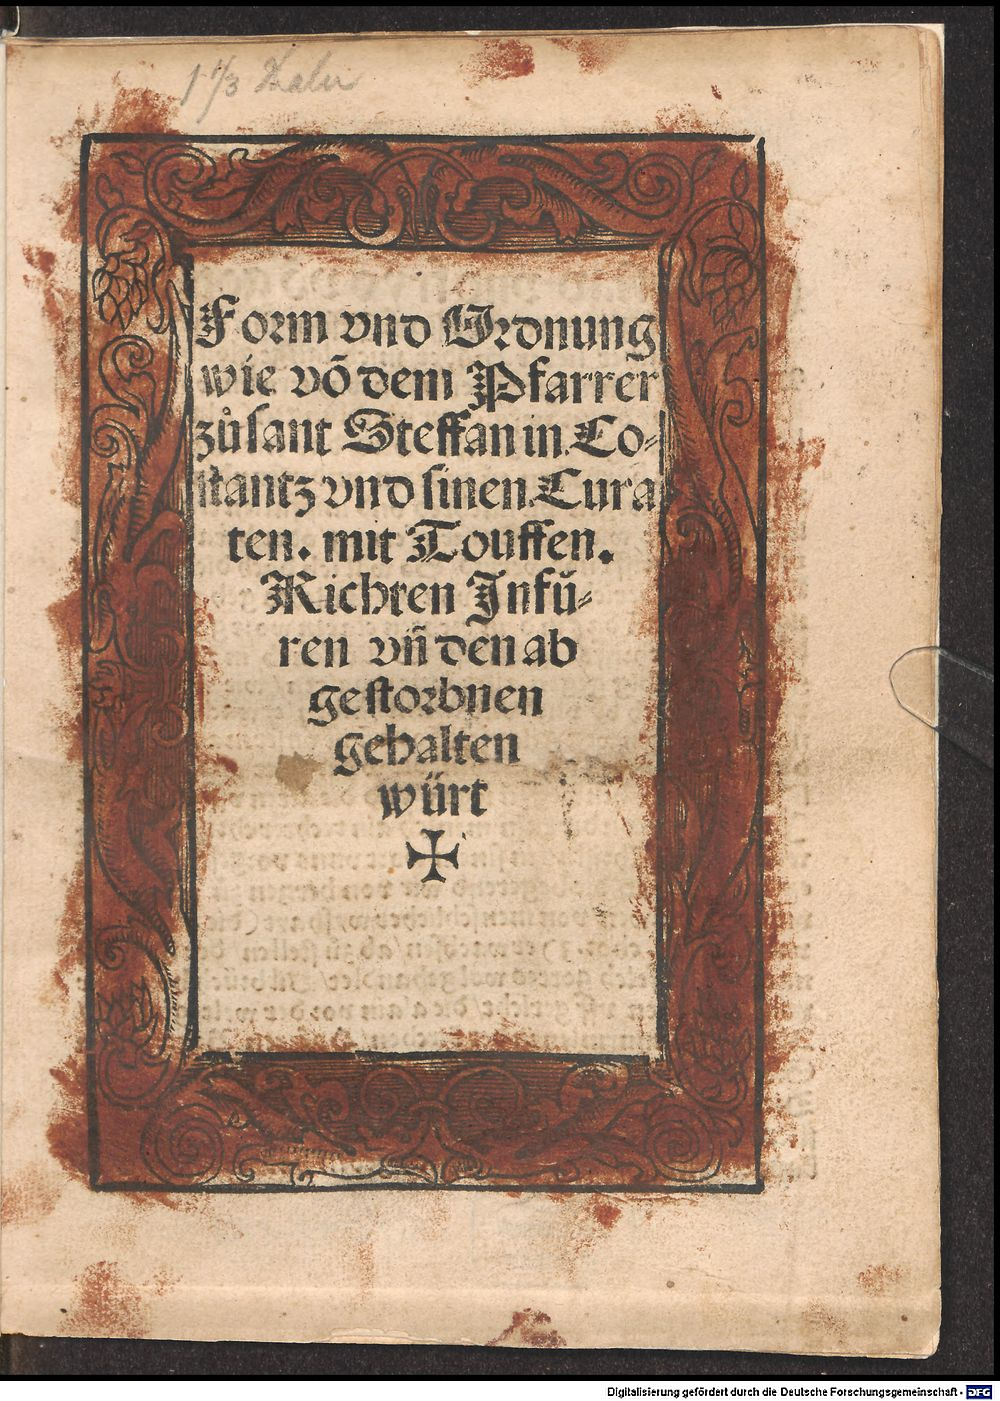 1 1/3 Thaler
Form vnd Ordnung
wie võ dem Pfarrer
zů sant Steffan in Co⸗
stantz vnd sinen Cura
ten. mit Touffen.
Richten Infů⸗
ren vñ den ab
gestorbnen
gehalten
würt
Digitalisierung gefördert durch die Deutsche Forschungsgemeinschaft - DFG